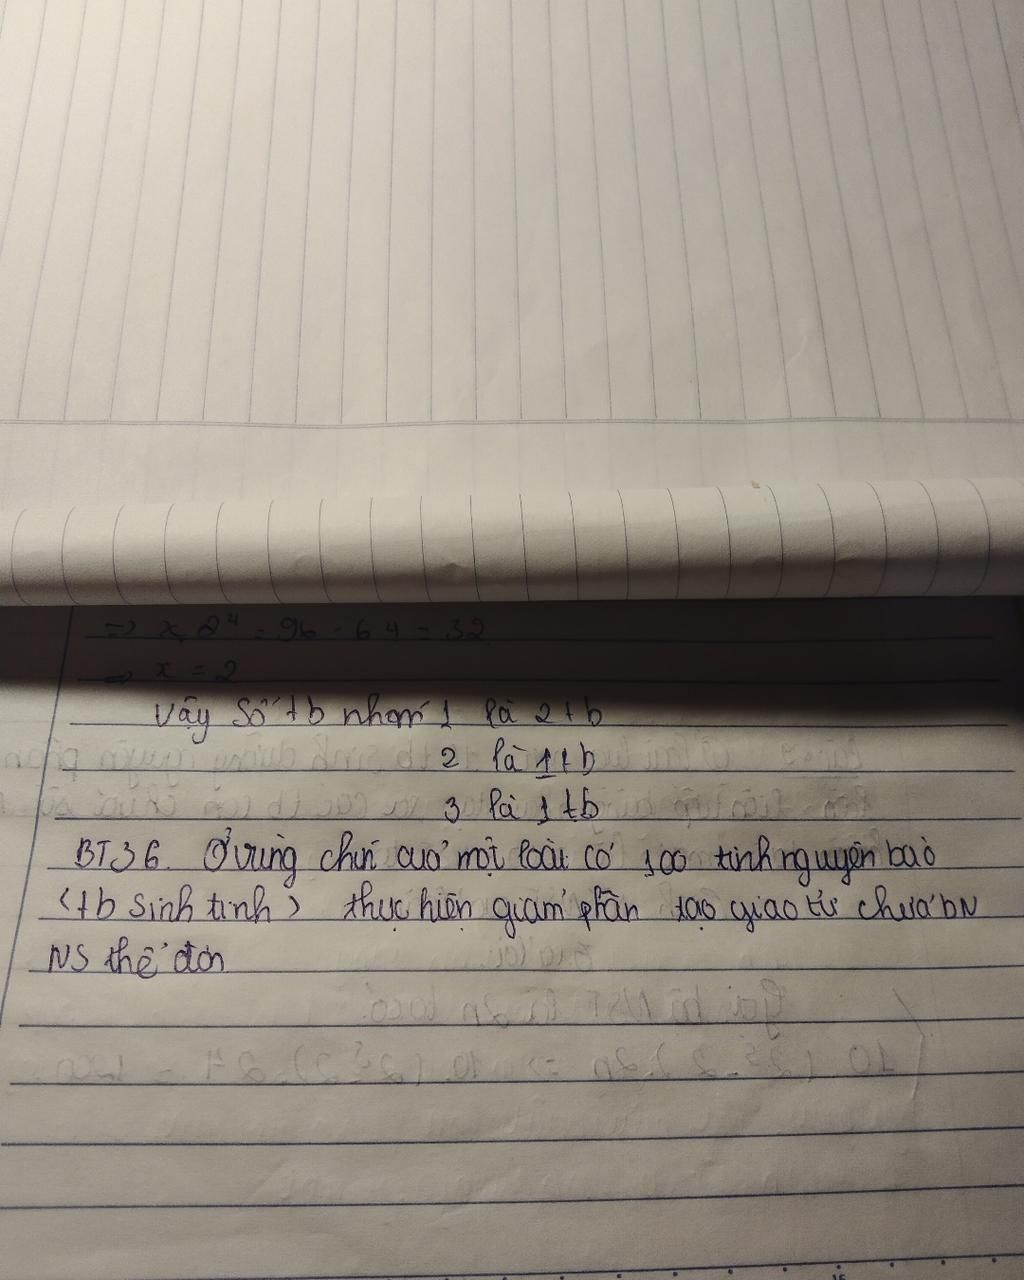 => x. 2⁴ = 96 - 64 = 32
=> x = 2
Vậy số tb nhóm 1 là 2 tb
2 là 1 tb
3 là 1 tb
BT36. Ở vùng chín của một loài có 100 tinh nguyên bào
(tb sinh tinh) thực hiện giảm phân tạo giao tử chứa bN
NS thể đơn